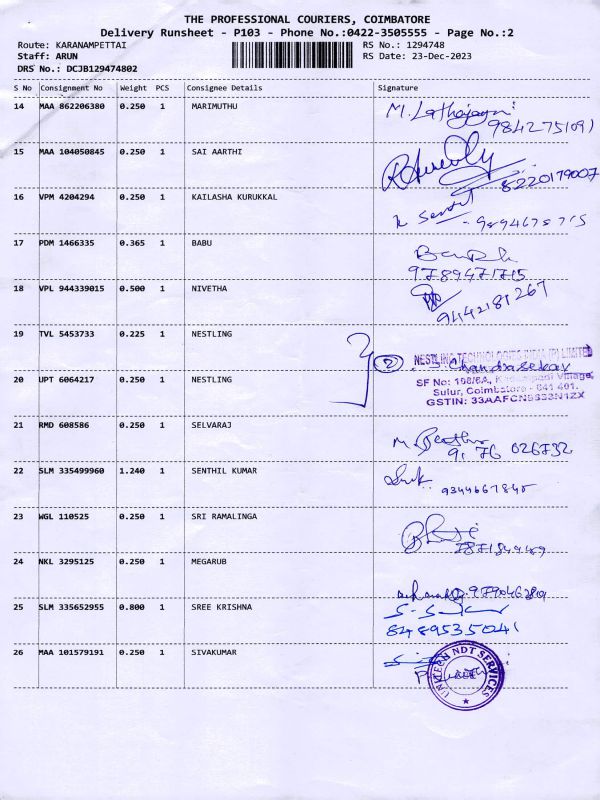 THE PROFESSIONAL COURIERS, COIMBATORE
Delivery Runsheet - P103 - Phone No.:0422-3505555 - Page No.:2
Route: KARANAMPETTAI RS No.: 1294748
Staff: ARUN RS Date: 23-Dec-2023
DRS No.: DCJB129474802
S No Consignment No Weight PCS Consignee Details Signature
14 MAA 862206380 0.250 1 MARIMUTHU
9842751091
15 MAA 104050845 0.250 1 SAI AARTHI
8220179007
16 VPM 4204294 0.250 1 KAILASHA KURUKKAL
17 PDM 1466335 0.365 1 BABU
9789471715
18 VPL 944339015 0.500 1 NIVETHA
9442181267
19 TVL 5453733 0.225 1 NESTLING
2 NESTLING TECHNOLOGIES INDIA (P) LIMITED
20 UPT 6064217 0.250 1 NESTLING
Sulur, Coimbatore - 641 401.
21 RMD 608586 0.250 1 SELVARAJ
22 SLM 335499960 1.240 1 SENTHIL KUMAR
9344667845
23 WGL 110525 0.250 1 SRI RAMALINGA
24 NKL 3295125 0.250 1 MEGARUB
25 SLM 335652955 0.800 1 SREE KRISHNA
8489535041
26 MAA 101579191 0.250 1 SIVAKUMAR
NDT SERVICES